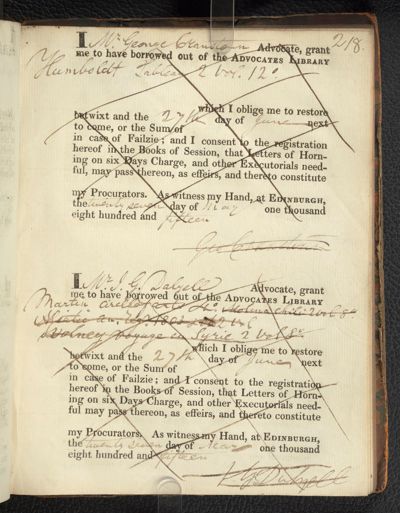 218.
I Mr. George Cranstoun Advocate, grant
me to have borrowed out of the ADVOCATES LIBRARY
Humboldt Tableau 2 vol. 12°
which I oblige me to restore
betwixt and the 27th day of June next
to come, or the Sum of
in case of Failzie; and I consent to the registration
hereof in the Books of Session, that Letters of Horn-
ing on six Days Charge, and other Executorials need-
ful, may pass thereon, as effeirs, and thereto constitute
my Procurators. As witness my Hand, at EDINBURGH,
the twenty seven day of May one thousand
eight hundred and fifteen
Geo Cranstoun
I Mr. J. G. Dalyell Advocate, grant
me to have borrowed out of the ADVOCATES LIBRARY
Martin 2 vol 8°
1802
Volney voyage en Syrie 2 vol 8°.
which I oblige me to restore
betwixt and the 27th day of June next
to come, or the Sum of
in case of Failzie; and I consent to the registration
hereof in the Books of Session, that Letters of Horn-
ing on six Days Charge, and other Executorials need-
ful may pass thereon, as effeirs, and thereto constitute
my Procurators. As witness my Hand, at EDINBURGH,
the twenty seven day of May one thousand
eight hundred and fifteen
J. G. Dalyell